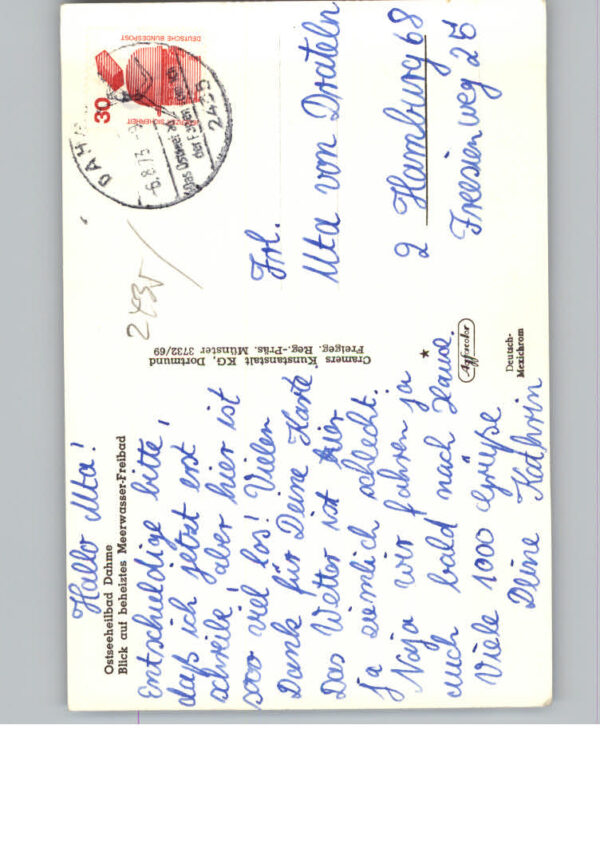 Hallo Uta!
Ostseeheilbad Dahme
Blick auf beheiztes Meerwasser-Freibad
Entschuldige bitte,
daß ich jetzt erst
schreibe, aber hier ist
sooo viel los! Vielen
Dank für Deine Karte
Das Wetter ist hier
ja ziemlich schlecht.
Naja wir fahren ja
auch bald nach Hause.
Viele 1000 Grüße
Deine Kathrin
Cramers Kunstanstalt KG, Dortmund
Freigeg. Reg.-Präs. Münster 3732/69
Agfacolor
Deutsch-
Mexichrom
2435
DEUTSCHE BUNDESPOST
30
DAHME
-6.8.73
Das Ostseebad
2435
Frl.
Uta von Drateln
2 Hamburg 68
Freesienweg 25